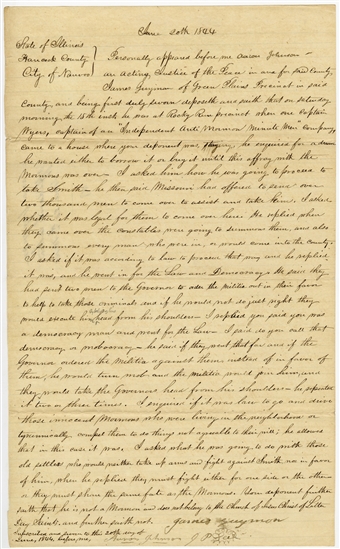 June 20th 1844
State of Illinois
Hancock County
City of Nauvoo
Personally appeared before me Aaron Johnson
an acting Justice of the Peace in and for said County,
James Guyman of Green Plains Precinct in said
County, and being first duly sworn deposeth and saith that on Saturday
morning, the 15th inst. he was at Rocky Run precinct when one Captain
Wyers, Captain of an "Independent Anti Mormon Minute Men Company,
came to a house where your deponent was staying, he enquired for a drum
he wanted either to borrow it or buy it until this affray with the
Mormons was over— I asked him how he was going to proceed to
take Smith— he then said Missouri has offered to send over
two thousand men to come over to assist and take him, I asked
whether it was legal for them to come over here. He replied when
they came over the constables were going to summons them, and also
to summons every man who were in, or would come into the county.
I asked if it was according to law to proceed that way and he replied
it was, and he went in for the Law and Democracy. He said they
had sent two men to the Governor to order the militia out in their favor
to help to take those criminals and if he would not do just right they
would execute his head from his shoulders— I replied you said you was
a democracy man and went for the Law— I said, do you call that
democracy or mobocracy— he said if they went that far and if the
Governor ordered the Militia against them instead of in favor of
them, he would turn mob and the militia would join him, and
they would take the Governors head from his shoulders— he repeated
it two or three times. I enquired if it was law to go and drive
those innocent Mormons who were living in the neighborhood or
tyrannically compel them to do things not agreeable to their will; he allowed
that in this case it was. I asked what he was going to do with those
old settlers who would neither take up arms and fight against Smith nor in favor
of him, when he replied they must fight either for one side or the other
or they must share the same fate as the Mormons. Your deponent further
saith that he is not a Mormon and does not belong to the Church of Jesus Christ of Latter
Day Saints, and further saith not.
James Guyman
Subscribed and sworn to this 20th day of
June, 1844, before me, Aaron Johnson J. P.